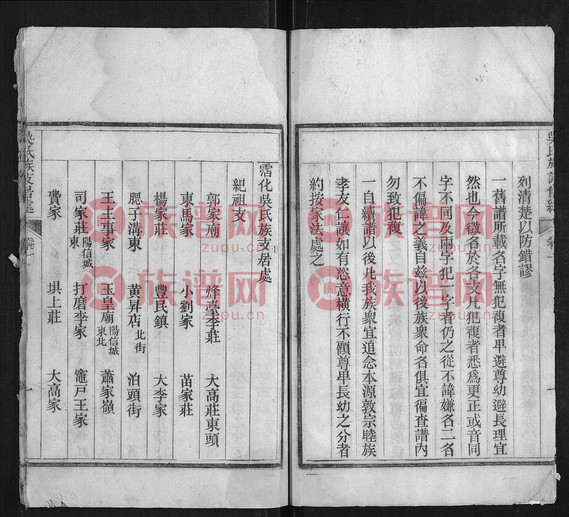 列清楚以防錯謬
一舊譜所載名字無犯複者卑避尊幼避長理宜
然也今徵名於各支凡犯複者悉為更正或音同
字不同及兩字犯一字者仍之從不諱嫌名二名
不偏諱之義自茲以後族衆命名俱宜徧查譜內
勿致犯複
一自續譜以後凡我族衆宜追念本源敦宗睦族
孝友仁讓如有恣意橫行不顧尊卑長幼之分者
約按家法處之
霑化吳氏族支居處
紀祖支
郭家廟 烽臺李莊 大高莊東頭
東馬家 小劉家 苗家莊
楊家莊 豐民鎮 大李家
腮子溝東 黃昇店北街 泊頭街
王主事家 玉皇廟陽信城東北 蕭家嶺
司家莊陽信城東 打磨李家 竈戸王家
費家 垻上莊 大高家
吳氏族支居處 卷一
族谱网
www.zupu.cn